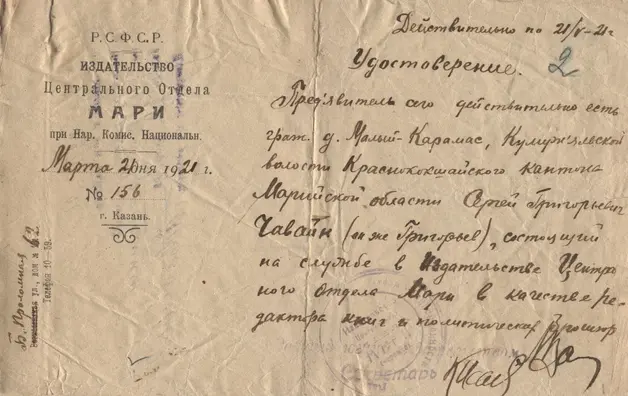 Р. С. Ф. С. Р.
ИЗДАТЕЛЬСТВО
Центрального Отдела
МАРИ
при Нар. Комис. Национальн.
Марта дня 1921 г.
№ 156
г. Казань.
Б. Проломная
ул., дом № 62
Телефон 10-58.
Действительно по 21/V-21 г
Удостоверение. 2
Пред'явитель сего действительно есть
граж. д. Малый-Карамас,
волости Краснококшайского кантона
Марийской области Сергей Григорьевич
Чавайн (он же Григорьев), состоящий
на службе в Издательстве Центр
ного Отдела Мари в качестве ре-
дактора книг и политическ брошюр
Секретарь